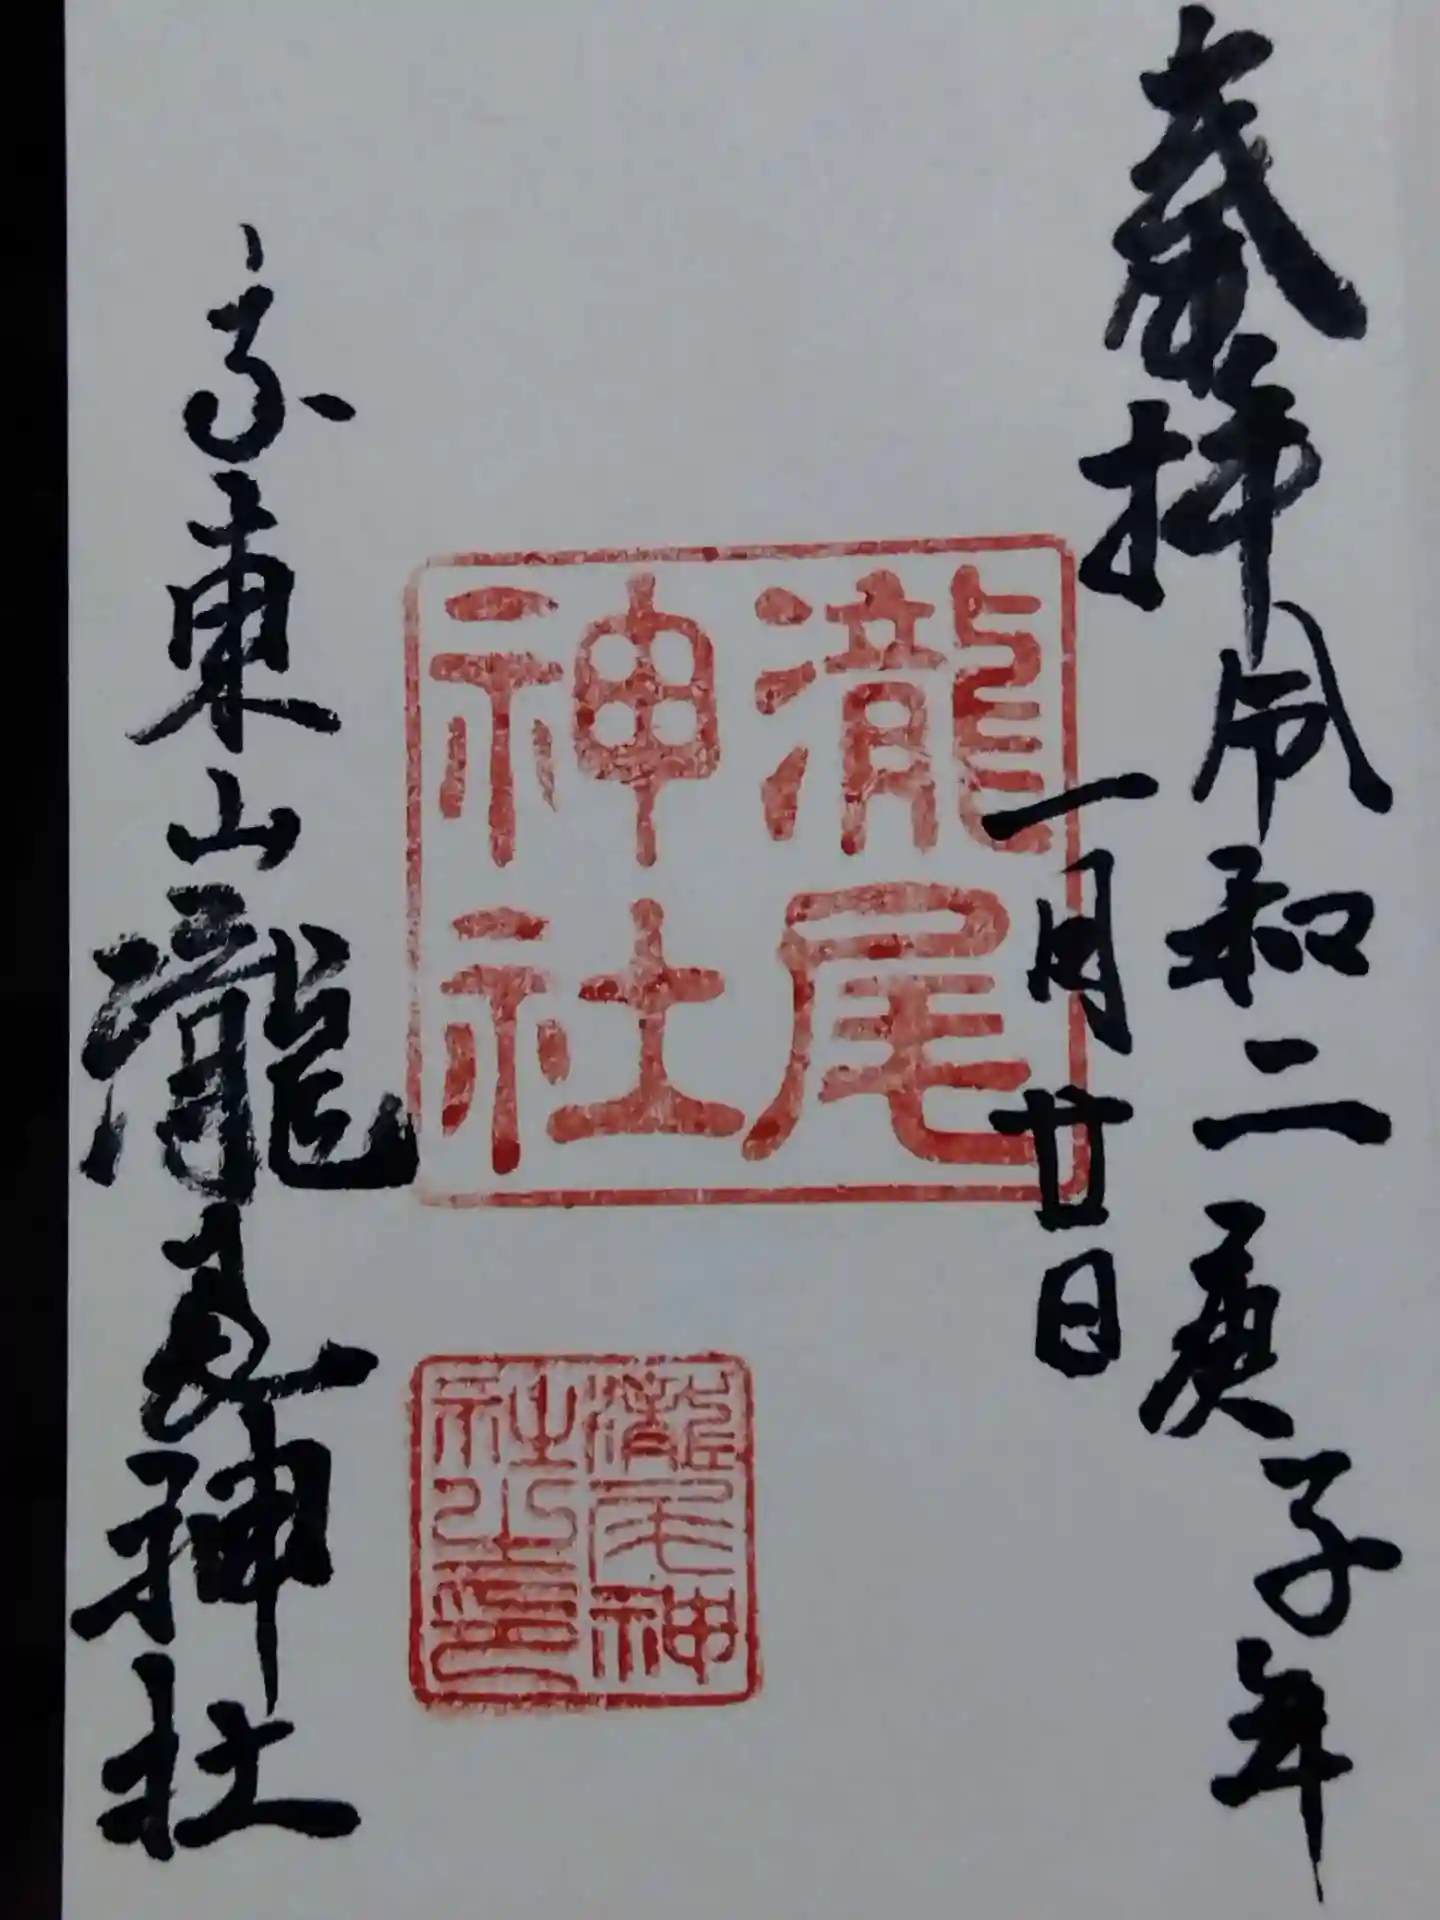 奉拝令和二庚子年
一月廿日
瀧尾
神社
瀧尾神
社之印
京東山瀧尾神社